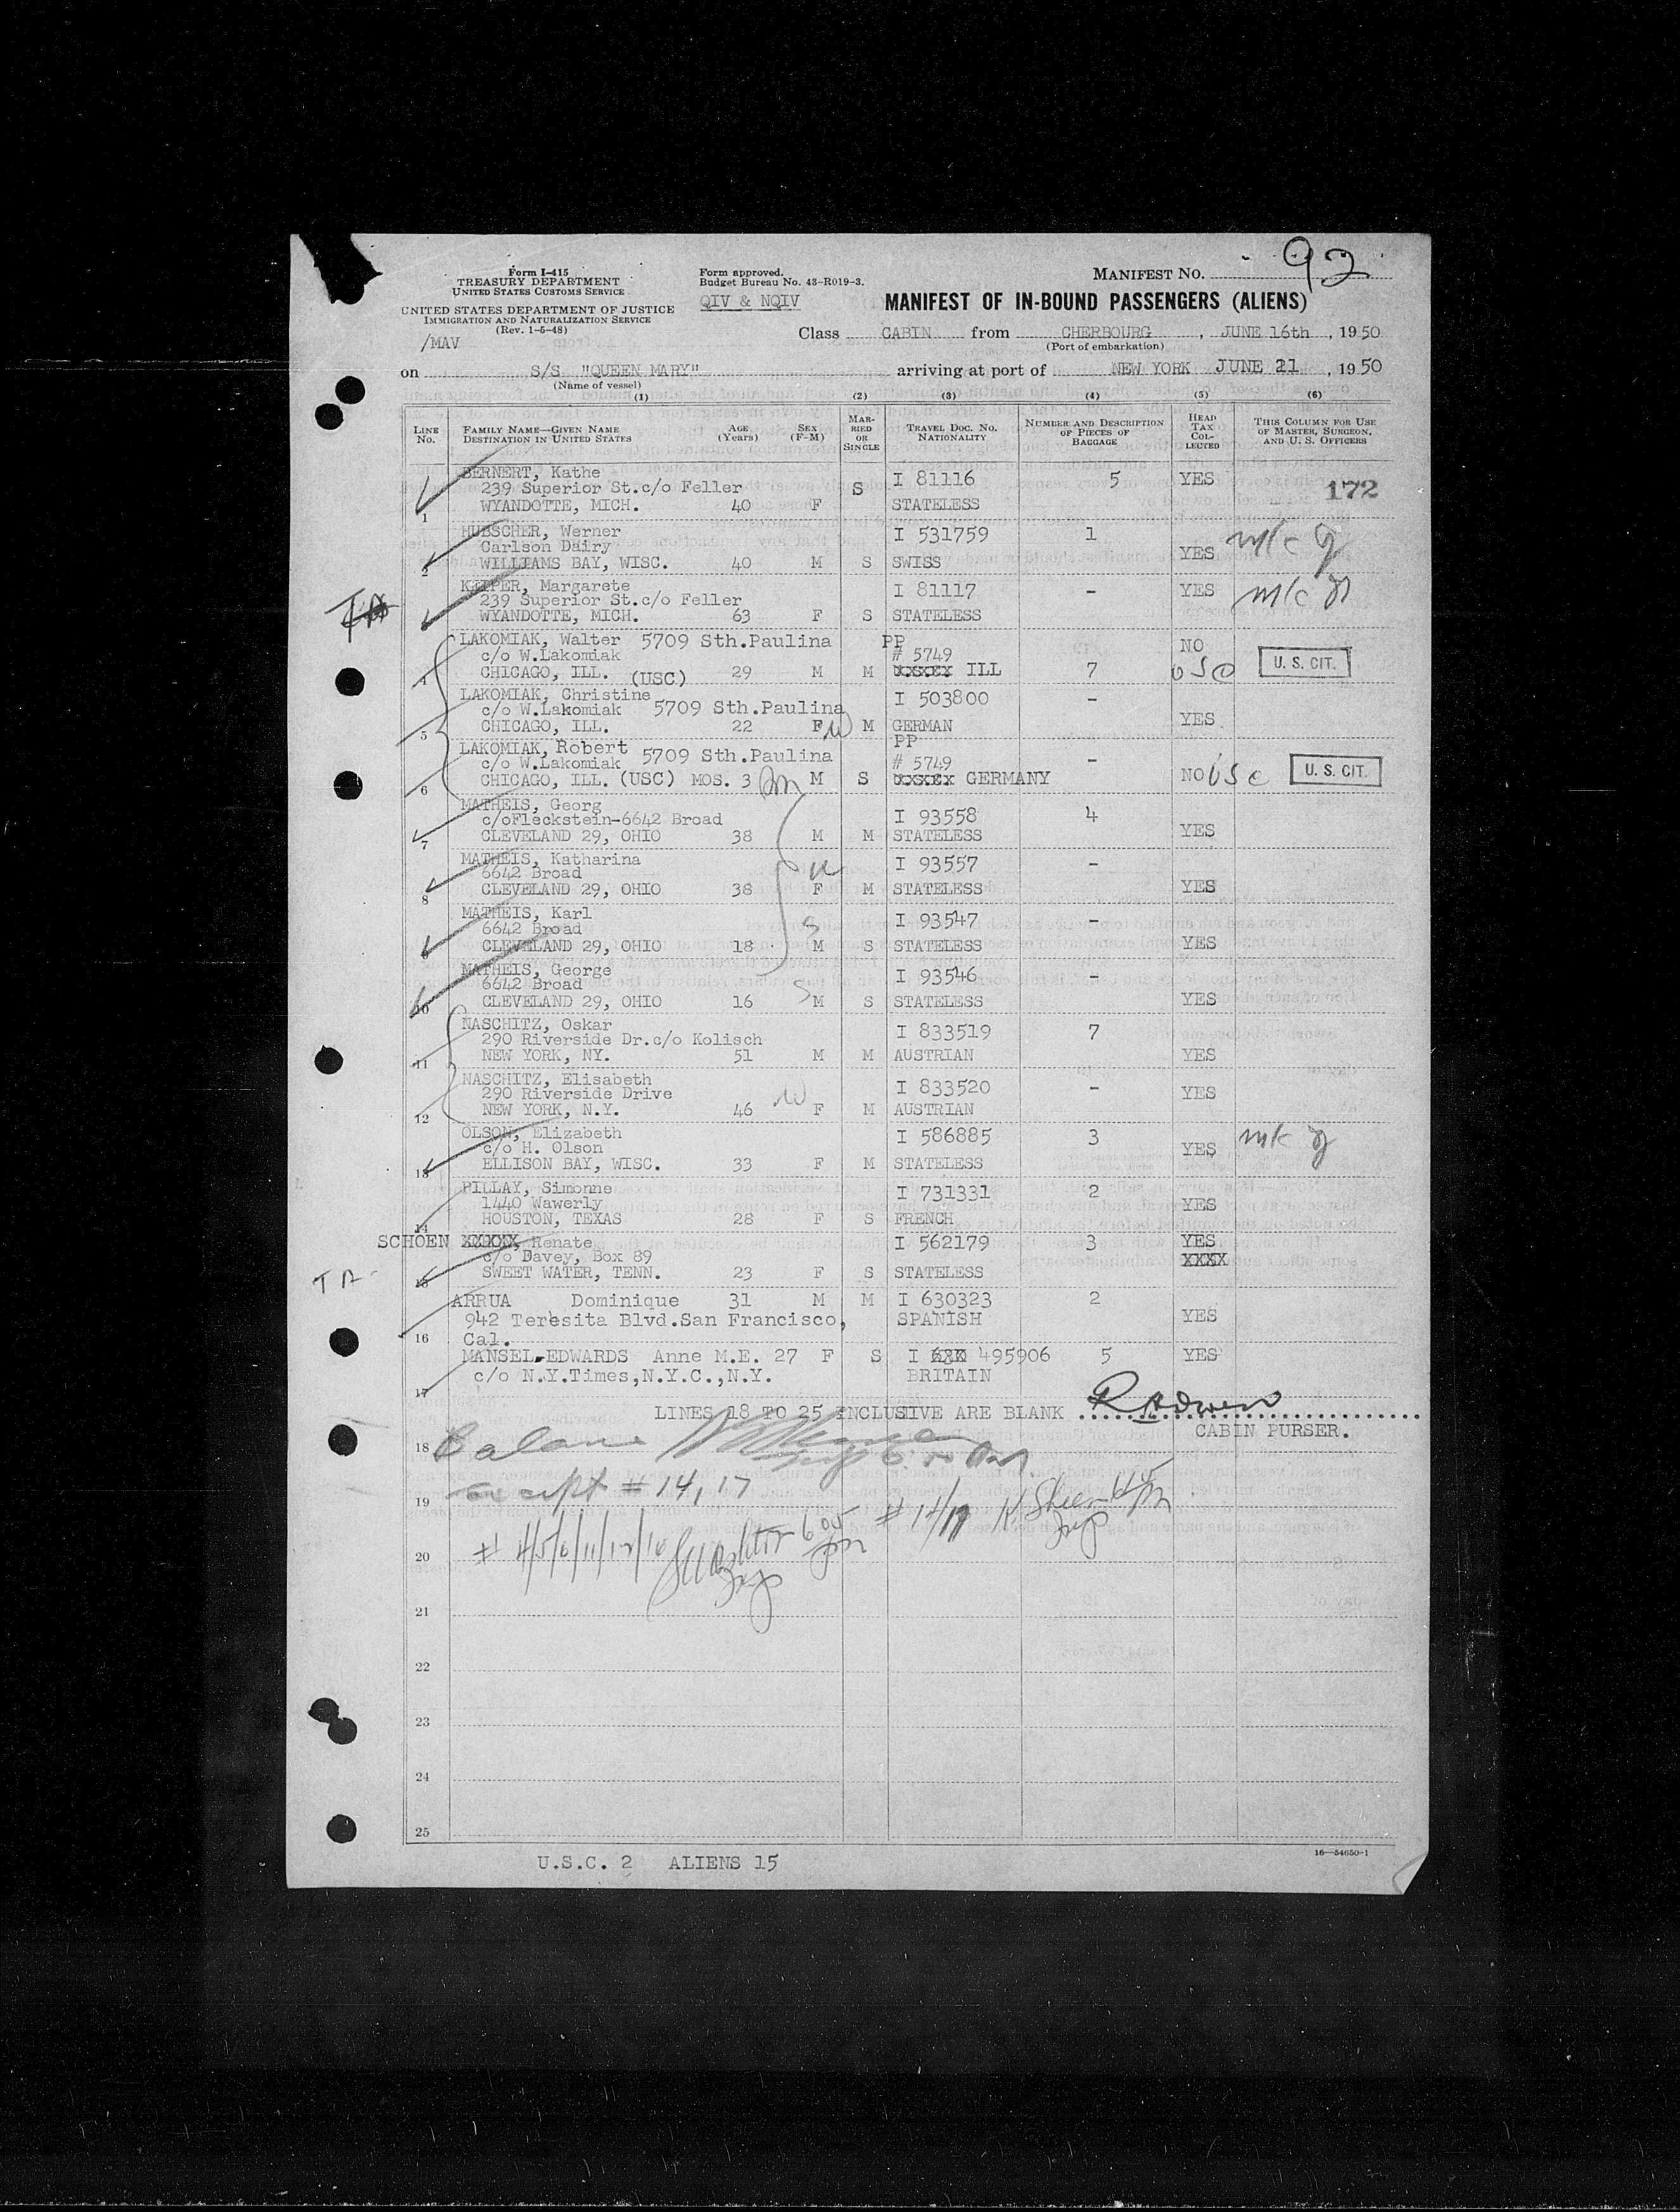 Form I-415
TREASURY DEPARTMENT
UNITED STATES CUSTOMS SERVICE
UNITED STATES DEPARTMENT OF JUSTICE
IMMIGRATION AND NATURALIZATION SERVICE
(Rev. 1-5-48)
/MAV
Form approved.
Budget Bureau No. 43-R019-3.
QIV & NQIV
MANIFEST NO. 92
MANIFEST OF IN-BOUND PASSENGERS (ALIENS)
Class CABIN from CHERBOURG, JUNE 16th, 1950
(Port of embarkation)
on S/S "QUEEN MARY" arriving at port of NEW YORK JUNE 21, 1950
(Name of vessel)
(1) (2) (3) (4) (5) (6)
LINE NO.
FAMILY NAME—GIVEN NAME
DESTINATION IN UNITED STATES
AGE (Years)
SEX (F-M)
MARRIED OR SINGLE
TRAVEL DOC. NO.
NATIONALITY
NUMBER AND DESCRIPTION OF PIECES OF BAGGAGE
HEAD TAX COLLECTED
THIS COLUMN FOR USE OF MASTER, SURGEON, AND U. S. OFFICERS
BERNERT, Kathe I 81116 5 YES 172
239 Superior St.c/o Feller S
1 WYANDOTTE, MICH. 40 F STATELESS
HUBSCHER, Werner I 531759 1
Carlson Dairy YES m/c
2 WILLIAMS BAY, WISC. 40 M S SWISS
KEIPER, Margarete I 81117 - YES m/c
239 Superior St.c/o Feller
WYANDOTTE, MICH. 63 F S STATELESS
LAKOMIAK, Walter 5709 Sth.Paulina PP NO
c/o W.Lakomiak # 5749
4 CHICAGO, ILL. (USC) 29 M M XXXXX ILL 7 USC U. S. CIT.
LAKOMIAK, Christine I 503800 -
c/o W.Lakomiak 5709 Sth.Paulina
5 CHICAGO, ILL. 22 F W M GERMAN YES
LAKOMIAK, Robert 5709 Sth.Paulina PP
c/o W.Lakomiak # 5749 -
6 CHICAGO, ILL. (USC) MOS. 3 M S XXXXX GERMANY NO USC U. S. CIT.
MATHEIS, Georg I 93558 4
c/oFleckstein-6642 Broad
7 CLEVELAND 29, OHIO 38 M M STATELESS YES
MATHEIS, Katharina I 93557 -
6642 Broad W
8 CLEVELAND 29, OHIO 38 F M STATELESS YES
MATHEIS, Karl I 93547 -
6642 Broad S
9 CLEVELAND 29, OHIO 18 M S STATELESS YES
MATHEIS, George I 93546 -
6642 Broad
10 CLEVELAND 29, OHIO 16 S M S STATELESS YES
NASCHITZ, Oskar I 833519 7
290 Riverside Dr.c/o Kolisch
11 NEW YORK, NY. 51 M M AUSTRIAN YES
NASCHITZ, Elisabeth I 833520 - YES
290 Riverside Drive W
12 NEW YORK, N.Y. 46 F M AUSTRIAN
OLSON, Elizabeth I 586885 3
c/o H. Olson YES
13 ELLISON BAY, WISC. 33 F M STATELESS
PILLAY, Simonne I 731331 2
1440 Wawerly YES
14 HOUSTON, TEXAS 28 F S FRENCH
SCHOEN XXXXX, Renate I 562179 3 YES
c/o Davey, Box 89 XXXX
15 SWEET WATER, TENN. 23 F S STATELESS
ARRUA Dominique 31 M M I 630323 2
942 Teresita Blvd.San Francisco, SPANISH YES
16 Cal.
MANSEL-EDWARDS Anne M.E. 27 F S I 495906 5 YES
17 c/o N.Y.Times,N.Y.C.,N.Y. BRITAIN
LINES 18 TO 25 INCLUSIVE ARE BLANK
CABIN PURSER.
18 Balance
19 except # 14, 17
# 14/17
20 # 4/5/6/11/12/16
21
22
23
24
25
U.S.C. 2 ALIENS 15
16—54650-1